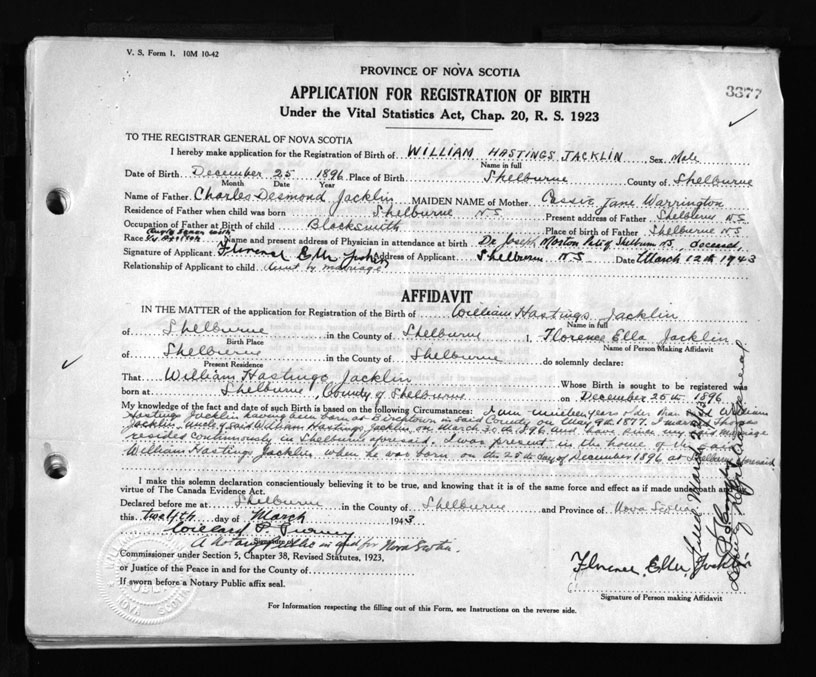 V. S. Form 1. 10M 10-42
PROVINCE OF NOVA SCOTIA
3377
APPLICATION FOR REGISTRATION OF BIRTH
Under the Vital Statistics Act, Chap. 20, R. S. 1923
TO THE REGISTRAR GENERAL OF NOVA SCOTIA
I hereby make application for the Registration of Birth of WILLIAM HASTINGS JACKLIN Sex Male
Name in full
Date of Birth December 25 1896 Place of Birth Shelburne County of Shelburne
Month Date Year
Name of Father Charles Desmond Jacklin MAIDEN NAME of Mother Cassie Jane Warrington
Residence of Father when child was born Shelburne N.S Present address of Father Shelburne N.S
Occupation of Father at Birth of child Blacksmith Place of birth of Father Shelburne N.S
Race Name and present address of Physician in attendance at birth Dr Joseph Morton late of Shelburne N.S, deceased
Signature of Applicant Florence Ella Jacklin Address of Applicant Shelburne N.S Date March 12th 1943
Relationship of Applicant to child Aunt by marriage
AFFIDAVIT
IN THE MATTER of the application for Registration of the Birth of William Hastings Jacklin
Name in full
of Shelburne in the County of Shelburne I, Florence Ella Jacklin
Birth Place Name of Person Making Affidavit
of Shelburne in the County of Shelburne do solemnly declare:
Present Residence
That William Hastings Jacklin Whose Birth is sought to be registered was
born at Shelburne, County of Shelburne on December 25th 1896
My knowledge of the fact and date of such Birth is based on the following Circumstances: I am nineteen years older than said William
Hastings Jacklin having been born at Birchtown in said County on May 9th 1877. I married Thomas
Jacklin, uncle of said William Hastings Jacklin, on March 30th 1896 and have since my said marriage
resided continuously in Shelburne aforesaid. I was present in the home of the said
William Hastings Jacklin when he was born on the 25th day of December 1896 at Shelburne aforesaid
I make this solemn declaration conscientiously believing it to be true, and knowing that it is of the same force and effect as if made under oath and by
virtue of The Canada Evidence Act.
Declared before me at Shelburne in the County of Shelburne and Province of Nova Scotia
this twelfth day of March 1943
Willard P.
A Notary Public in and for Nova Scotia.
Commissioner under Section 5, Chapter 38, Revised Statutes, 1923,
or Justice of the Peace in and for the County of
If sworn before a Notary Public affix seal.
Florence Ella Jacklin
Signature of Person making Affidavit
For Information respecting the filling out of this Form, see Instructions on the reverse side.
Deputy Registrar General
NOVA SCOTIA